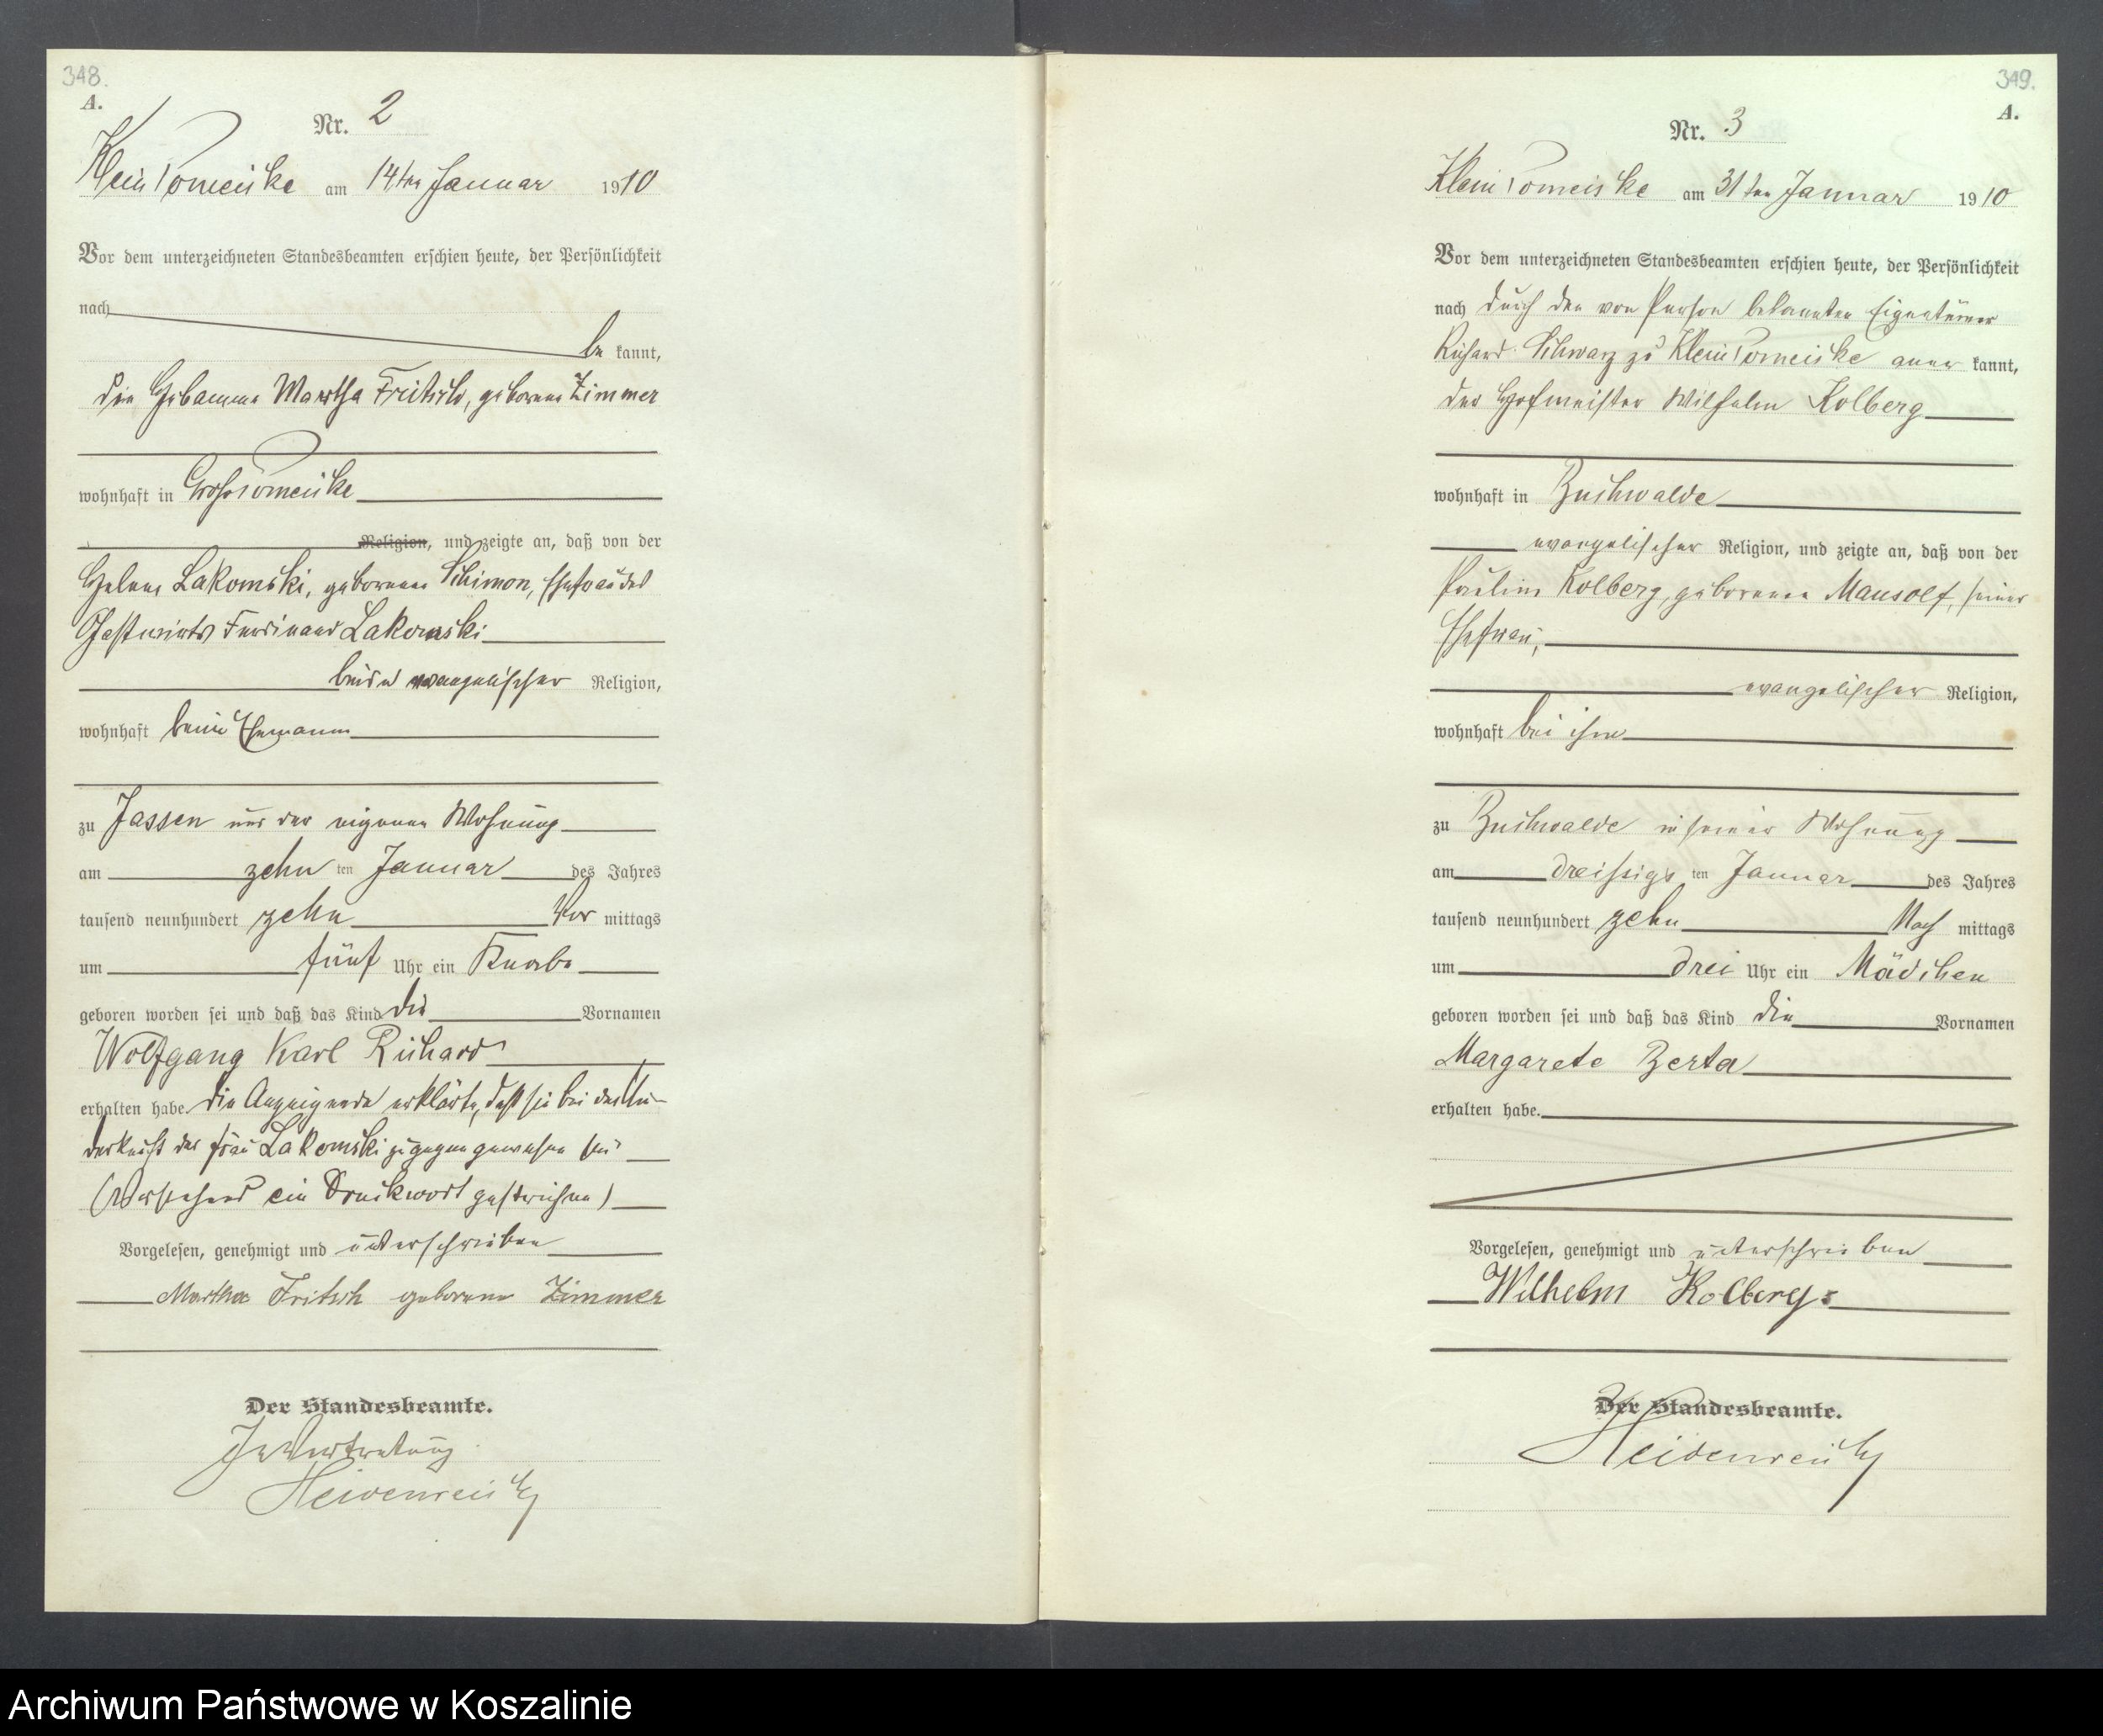 348.
A.
Nr. 2
Klein Pomeiske am 14ten Januar 1910
Vor dem unterzeichneten Standesbeamten erschien heute, der Persönlichkeit
nach
be kannt,
die Hebamme Martha Fritsch, geborene Zimmer
wohnhaft in Groß Pomeiske
Religion, und zeigte an, daß von der
Helene Lakomski, geborenen Schimon, Ehefrau des
Gastwirts Ferdinand Lakomski
beide evangelischer Religion,
wohnhaft beim Ehemann
zu Jassen in der eigenen Wohnung
am zehn ten Januar des Jahres
tausend neunhundert zehn Vor mittags
um fünf Uhr ein Knabe
geboren worden sei und daß das Kind die Vornamen
Wolfgang Karl Richard
erhalten habe. Die Anzeigende erklärte, daß sie bei der Nie-
derkunft der Frau Lakomski zugegen gewesen sei
(Vorstehend ein Druckwort gestrichen)
Vorgelesen, genehmigt und unterschrieben
Martha Fritsch geborene Zimmer
Der Standesbeamte.
In Vertretung
Heidenreich
349.
A.
Nr. 3
Klein Pomeiske am 31ten Januar 1910
Vor dem unterzeichneten Standesbeamten erschien heute, der Persönlichkeit
nach durch den von Person bekannten Eigentümer
Richard Schwarz zu Klein Pomeiske aner kannt,
der Hofmeister Wilhelm Kolberg
wohnhaft in Buchwalde
evangelischer Religion, und zeigte an, daß von der
Pauline Kolberg, geborenen Mansolf, seiner
Ehefrau,
evangelischer Religion,
wohnhaft bei ihm
zu Buchwalde in seiner Wohnung
am dreissigs ten Januar des Jahres
tausend neunhundert zehn Nach mittags
um drei Uhr ein Mädchen
geboren worden sei und daß das Kind die Vornamen
Margarete Berta
erhalten habe.
Vorgelesen, genehmigt und unterschrieben
Wilhelm Kolberg
Der Standesbeamte.
Heidenreich
Archiwum Państwowe w Koszalinie